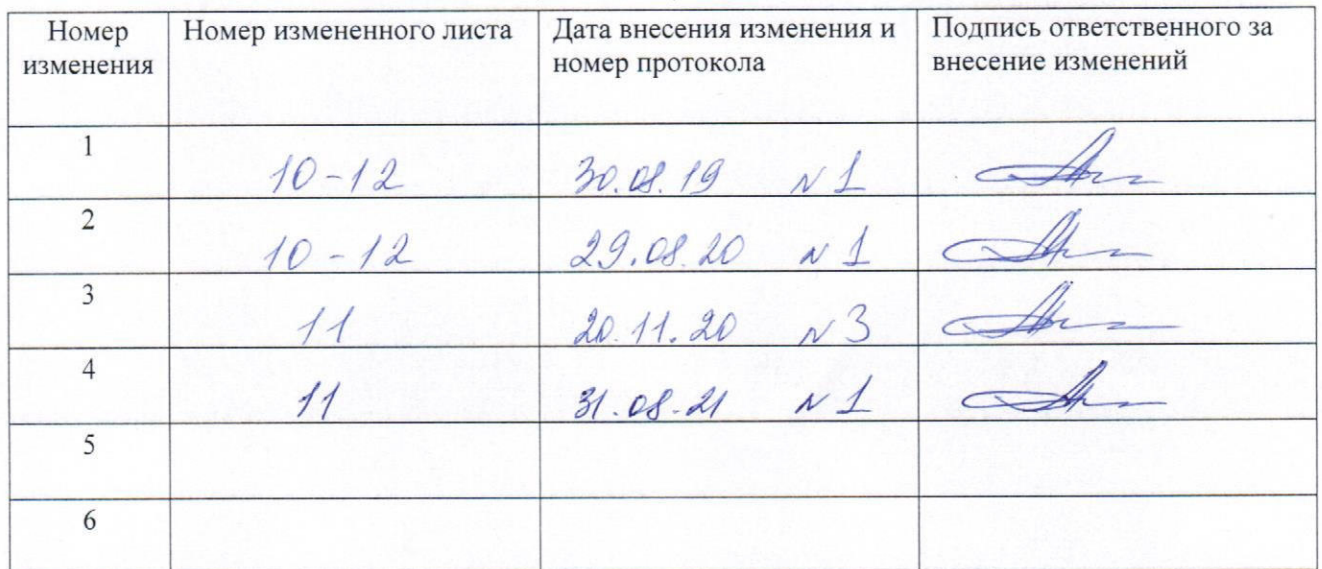 Номер изменения Номер измененного листа Дата внесения изменения и номер протокола Подпись ответственного за внесение изменений
1 10-12 30.08.19 N1
2 10-12 29.08.20 N1
3 11 20.11.20 N3
4 11 31.08.21 N1
5
6